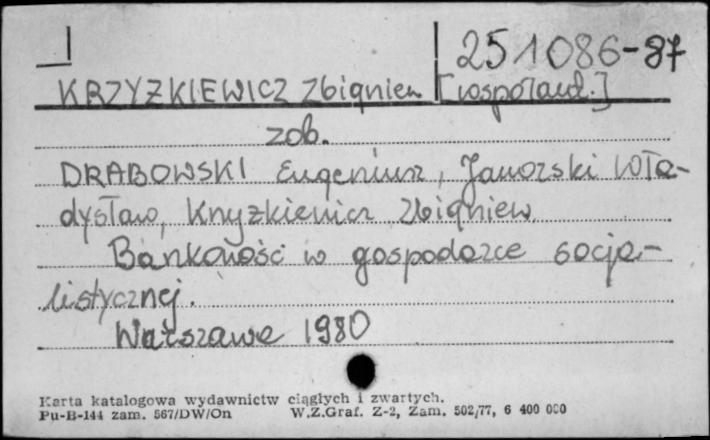 251086-87
KRZYŻKIEWICZ Zbigniew [współaut.]
zob.
DRABOWSKI Eugeniusz, Jaworski Wła-
dysław, Krzyżkiewicz Zbigniew.
Bankowość w gospodarce socja-
listycznej.
Warszawa 1980
Karta katalogowa wydawnictw ciągłych i zwartych.
Pu-B-144 zam. 567/DW/On W.Z.Graf. Z-2, Zam. 502/77, 6 400 000